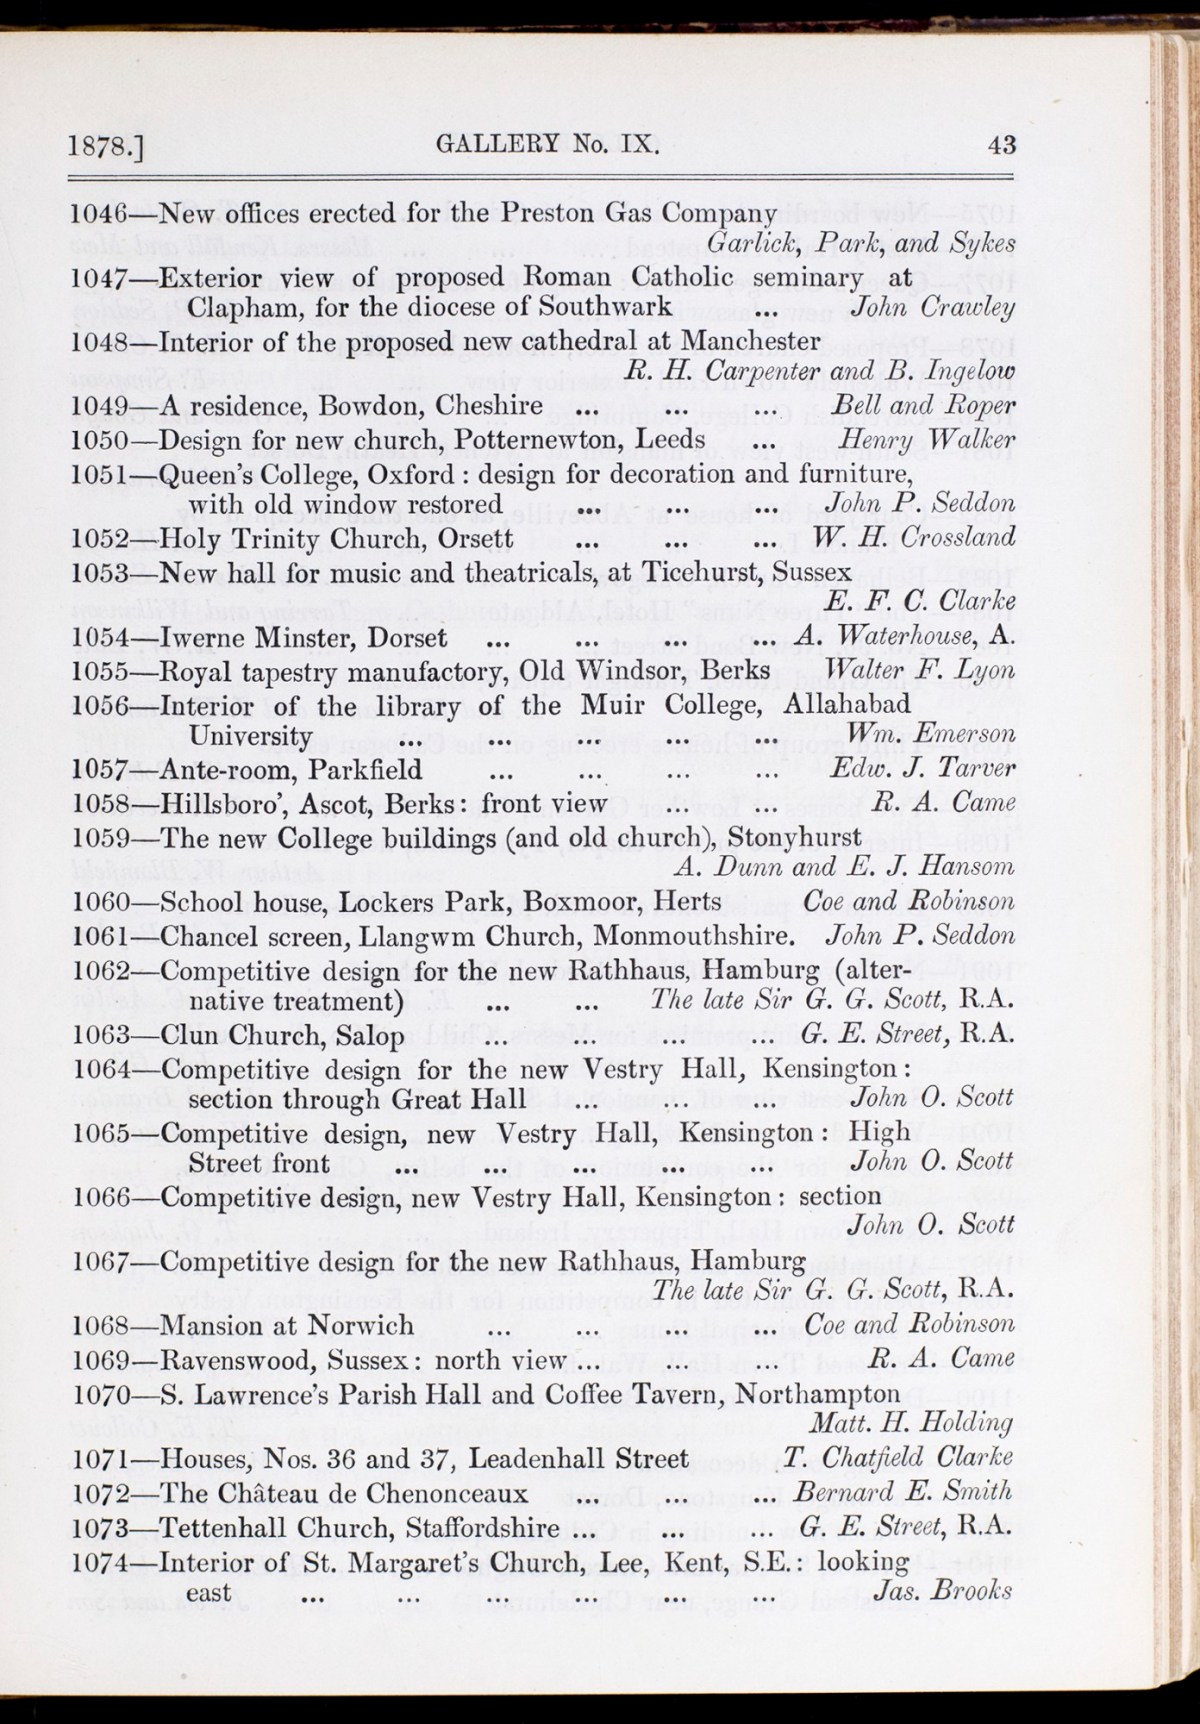 1878.] GALLERY No. IX. 43
1046—New offices erected for the Preston Gas Company
Garlick, Park, and Sykes
1047—Exterior view of proposed Roman Catholic seminary at
Clapham, for the diocese of Southwark ... John Crawley
1048—Interior of the proposed new cathedral at Manchester
R. H. Carpenter and B. Ingelow
1049—A residence, Bowdon, Cheshire ... ... ... Bell and Roper
1050—Design for new church, Potternewton, Leeds ... Henry Walker
1051—Queen's College, Oxford : design for decoration and furniture,
with old window restored ... ... ... John P. Seddon
1052—Holy Trinity Church, Orsett ... ... ... W. H. Crossland
1053—New hall for music and theatricals, at Ticehurst, Sussex
E. F. C. Clarke
1054—Iwerne Minster, Dorset ... ... ... ... A. Waterhouse, A.
1055—Royal tapestry manufactory, Old Windsor, Berks Walter F. Lyon
1056—Interior of the library of the Muir College, Allahabad
University ... ... ... ... ... Wm. Emerson
1057—Ante-room, Parkfield ... ... ... ... Edw. J. Tarver
1058—Hillsboro', Ascot, Berks : front view ... ... R. A. Came
1059—The new College buildings (and old church), Stonyhurst
A. Dunn and E. J. Hansom
1060—School house, Lockers Park, Boxmoor, Herts Coe and Robinson
1061—Chancel screen, Llangwm Church, Monmouthshire. John P. Seddon
1062—Competitive design for the new Rathhaus, Hamburg (alter-
native treatment) ... ... The late Sir G. G. Scott, R.A.
1063—Clun Church, Salop ... ... ... ... G. E. Street, R.A.
1064—Competitive design for the new Vestry Hall, Kensington :
section through Great Hall ... ... ... John O. Scott
1065—Competitive design, new Vestry Hall, Kensington : High
Street front ... ... ... ... ... John O. Scott
1066—Competitive design, new Vestry Hall, Kensington : section
John O. Scott
1067—Competitive design for the new Rathhaus, Hamburg
The late Sir G. G. Scott, R.A.
1068—Mansion at Norwich ... ... ... ... Coe and Robinson
1069—Ravenswood, Sussex : north view ... ... ... R. A. Came
1070—S. Lawrence's Parish Hall and Coffee Tavern, Northampton
Matt. H. Holding
1071—Houses, Nos. 36 and 37, Leadenhall Street T. Chatfield Clarke
1072—The Château de Chenonceaux ... ... ... Bernard E. Smith
1073—Tettenhall Church, Staffordshire ... ... ... G. E. Street, R.A.
1074—Interior of St. Margaret's Church, Lee, Kent, S.E. : looking
east ... ... ... ... ... ... Jas. Brooks